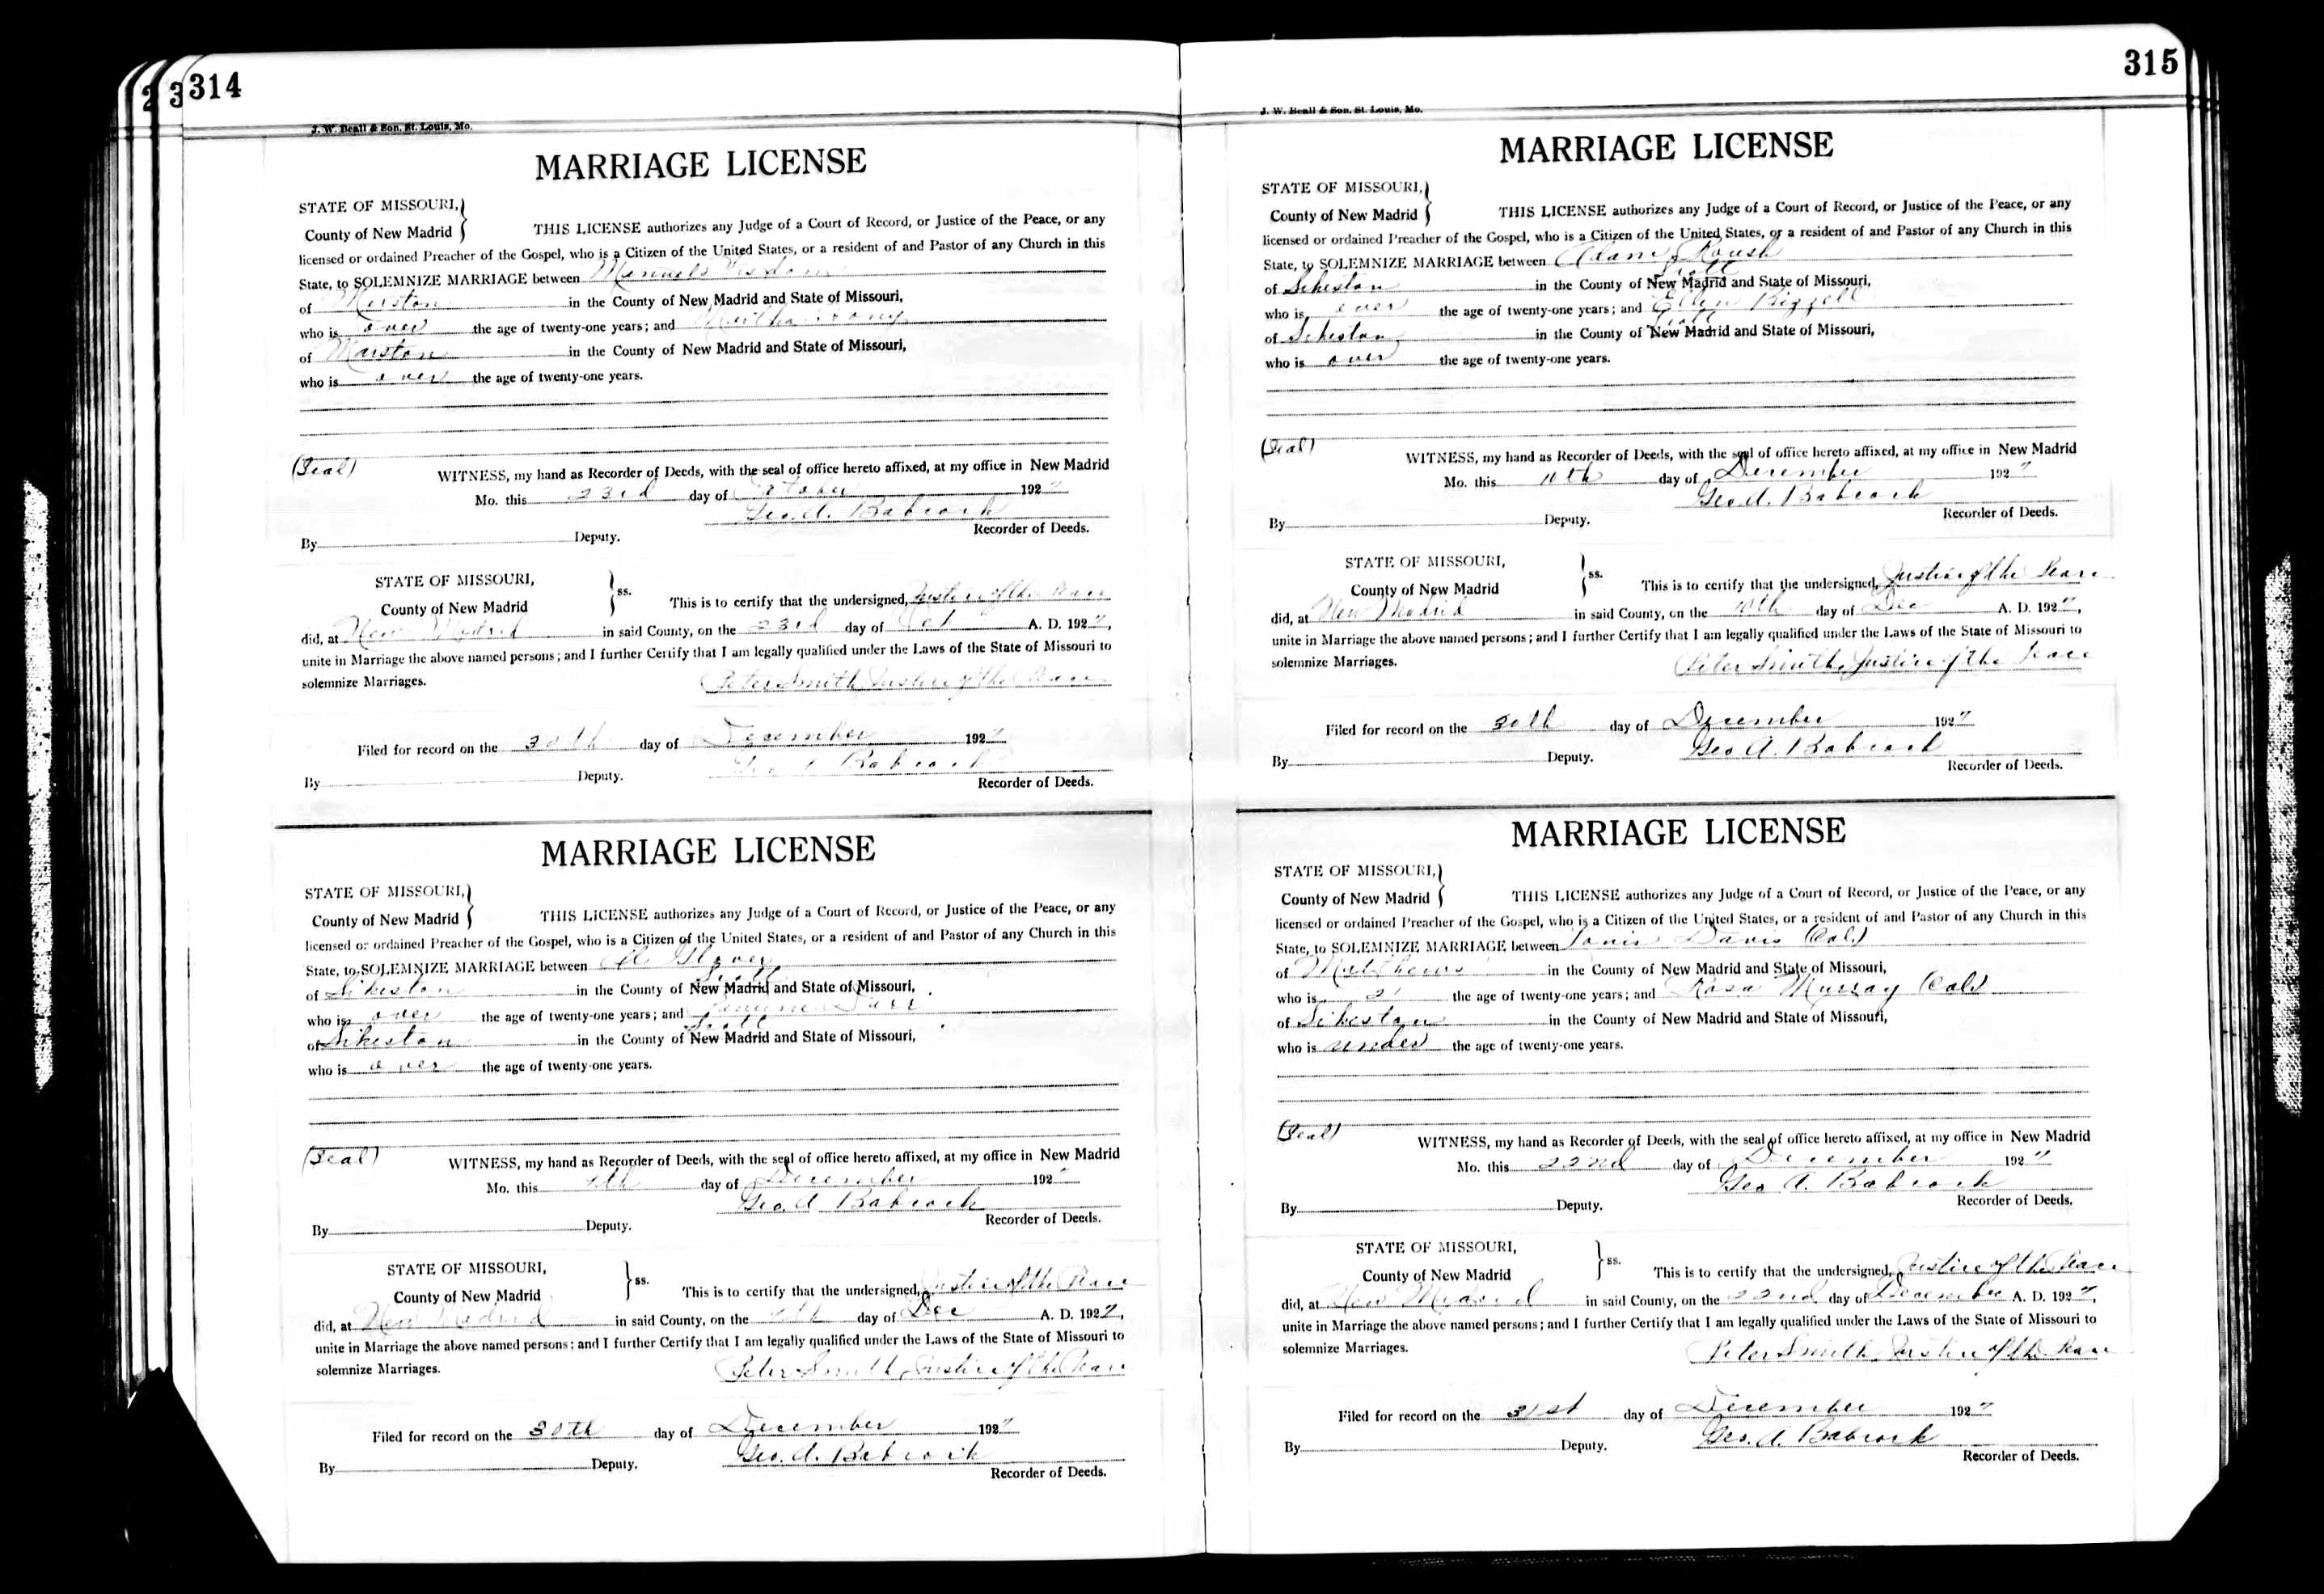 314
J. W. Beall & Son, St. Louis, Mo.
MARRIAGE LICENSE
STATE OF MISSOURI,
County of New Madrid
THIS LICENSE authorizes any Judge of a Court of Record, or Justice of the Peace, or any
licensed or ordained Preacher of the Gospel, who is a Citizen of the United States, or a resident of and Pastor of any Church in this
State, to SOLEMNIZE MARRIAGE between
of Marston in the County of New Madrid and State of Missouri,
who is over the age of twenty-one years; and Martha
of Marston in the County of New Madrid and State of Missouri,
who is over the age of twenty-one years.
(Seal)
WITNESS, my hand as Recorder of Deeds, with the seal of office hereto affixed, at my office in New Madrid
Mo. this 23rd day of October 192
Geo. A. Babcock
Recorder of Deeds.
By Deputy.
STATE OF MISSOURI,
County of New Madrid
ss.
This is to certify that the undersigned, Justice of the Peace
did, at New Madrid in said County, on the 23rd day of Oct A. D. 192 ,
unite in Marriage the above named persons; and I further Certify that I am legally qualified under the Laws of the State of Missouri to
solemnize Marriages. Peter Smith, Justice of the Peace
Filed for record on the 30th day of December 192
Geo A Babcock
By Deputy.
Recorder of Deeds.
MARRIAGE LICENSE
STATE OF MISSOURI,
County of New Madrid
THIS LICENSE authorizes any Judge of a Court of Record, or Justice of the Peace, or any
licensed or ordained Preacher of the Gospel, who is a Citizen of the United States, or a resident of and Pastor of any Church in this
State, to SOLEMNIZE MARRIAGE between Glover
Scott
of Sikeston in the County of New Madrid and State of Missouri,
who is over the age of twenty-one years; and
Scott
of Sikeston in the County of New Madrid and State of Missouri,
who is over the age of twenty-one years.
(Seal)
WITNESS, my hand as Recorder of Deeds, with the seal of office hereto affixed, at my office in New Madrid
Mo. this day of December 192
Geo. A. Babcock
Recorder of Deeds.
By Deputy.
STATE OF MISSOURI,
County of New Madrid
ss.
This is to certify that the undersigned, Justice of the Peace
did, at New Madrid in said County, on the day of Dec A. D. 192 ,
unite in Marriage the above named persons; and I further Certify that I am legally qualified under the Laws of the State of Missouri to
solemnize Marriages. Peter Smith, Justice of the Peace
Filed for record on the 30th day of December 192
Geo. A. Babcock
By Deputy.
Recorder of Deeds.
315
J. W. Beall & Son, St. Louis, Mo.
MARRIAGE LICENSE
STATE OF MISSOURI,
County of New Madrid
THIS LICENSE authorizes any Judge of a Court of Record, or Justice of the Peace, or any
licensed or ordained Preacher of the Gospel, who is a Citizen of the United States, or a resident of and Pastor of any Church in this
State, to SOLEMNIZE MARRIAGE between Adam Roush
Scott
of Sikeston in the County of New Madrid and State of Missouri,
who is over the age of twenty-one years; and Ellen Bizzell
Scott
of Sikeston in the County of New Madrid and State of Missouri,
who is over the age of twenty-one years.
(Seal)
WITNESS, my hand as Recorder of Deeds, with the seal of office hereto affixed, at my office in New Madrid
Mo. this 10th day of December 192
Geo. A. Babcock
Recorder of Deeds.
By Deputy.
STATE OF MISSOURI,
County of New Madrid
ss.
This is to certify that the undersigned, Justice of the Peace
did, at New Madrid in said County, on the 10th day of Dec A. D. 192 ,
unite in Marriage the above named persons; and I further Certify that I am legally qualified under the Laws of the State of Missouri to
solemnize Marriages. Peter Smith, Justice of the Peace
Filed for record on the 30th day of December 192
Geo A. Babcock
By Deputy.
Recorder of Deeds.
MARRIAGE LICENSE
STATE OF MISSOURI,
County of New Madrid
THIS LICENSE authorizes any Judge of a Court of Record, or Justice of the Peace, or any
licensed or ordained Preacher of the Gospel, who is a Citizen of the United States, or a resident of and Pastor of any Church in this
State, to SOLEMNIZE MARRIAGE between Davis (Col.)
of Matthews in the County of New Madrid and State of Missouri,
who is 21 the age of twenty-one years; and Rosa Murray (Col)
of Sikeston in the County of New Madrid and State of Missouri,
who is under the age of twenty-one years.
(Seal)
WITNESS, my hand as Recorder of Deeds, with the seal of office hereto affixed, at my office in New Madrid
Mo. this 22nd day of December 192
Geo A. Babcock
Recorder of Deeds.
By Deputy.
STATE OF MISSOURI,
County of New Madrid
ss.
This is to certify that the undersigned, Justice of the Peace
did, at New Madrid in said County, on the 22nd day of December A. D. 192 ,
unite in Marriage the above named persons; and I further Certify that I am legally qualified under the Laws of the State of Missouri to
solemnize Marriages. Peter Smith, Justice of the Peace
Filed for record on the 31st day of December 192
Geo. A. Babcock
By Deputy.
Recorder of Deeds.